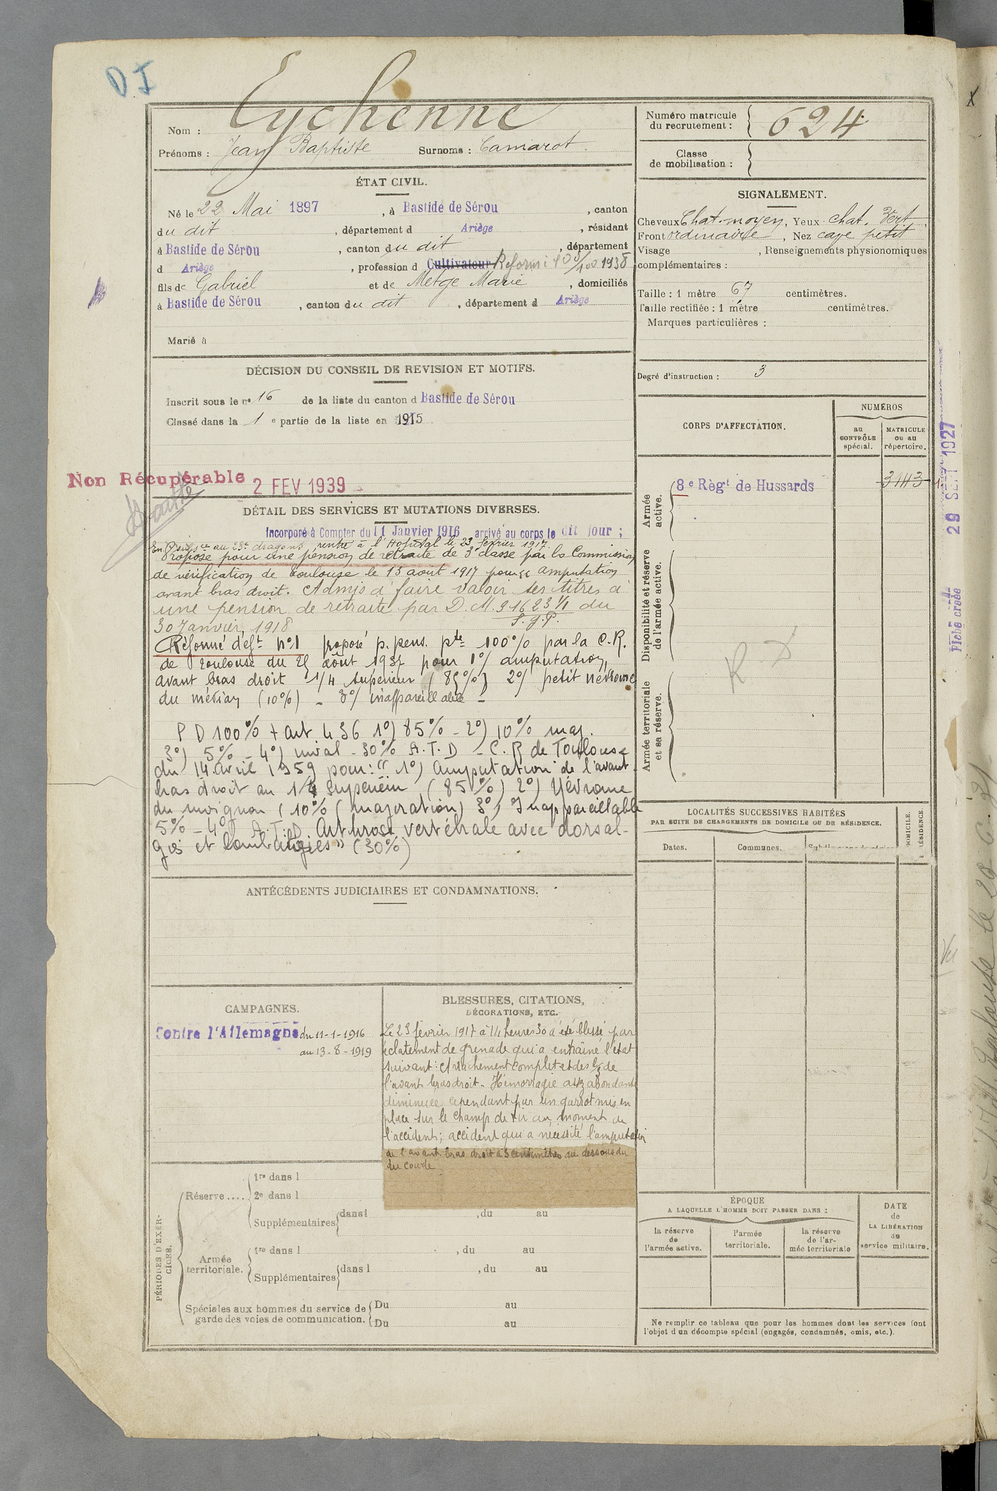 D.I
Nom : Eychenne
Prénoms : Jean Baptiste Surnoms : Camarot.
Numéro matricule du recrutement : 624
Classe de mobilisation :
ÉTAT CIVIL.
Né le 22 Mai 1897, à Bastide de Sérou, canton
du dit, département d Ariège, résidant
à Bastide de Sérou, canton du dit, département
d Ariège, profession d Cultivateur Reformé 100/100 1938
fils de Gabriel et de Metge Marie, domiciliés
à Bastide de Sérou, canton du dit, département d Ariège
Marié à
SIGNALEMENT.
Cheveux Chat. moyen, Yeux chat. Vert
Front ordinaire, Nez cave petit
Visage , Renseignements physionomiques
complémentaires :
Taille : 1 mètre 67 centimètres.
Taille rectifiée : 1 mètre centimètres.
Marques particulières :
Degré d'instruction : 3
DÉCISION DU CONSEIL DE REVISION ET MOTIFS.
Inscrit sous le nº 16 de la liste du canton d Bastide de Sérou
Classé dans la 1 e partie de la liste en 1915
Non Récupérable 2 FEV 1939
DÉTAIL DES SERVICES ET MUTATIONS DIVERSES.
Incorporé à Compter du 11 Janvier 1916 arrivé au corps le dit jour ;
au 23e dragons, rentré à l'Hopital le 23 fevrier 1917
Proposé pour une pension de retraite de 3e classe par la Commission
de vérification de Toulouse le 13 aout 1917 pour amputation
avant bras droit. Admis à faire valoir ses titres à
une pension de retraite par D.M. 91623 % du
30 Janvier 1918
Réformé defт nº1 proposé p. pens. pte 100% par la C.R.
de Toulouse du 25 août 1937 pour 1º/ amputation
avant bras droit 1/4 supérieur (85%) 2º/ petit névrome
du médian (10%) - 3º/ inappareillable -
P D 100% + art 4 36 1º) 85% - 2º) 10% maj.
3º) 5% - 4º) 30% A.T.D - C.R de Toulouse
du 14 avril 1959 pour: " 1º) Amputation de l'avant
bras droit au 1/4 supérieur (85%) 2º) Névrome
du moignon (10% (majoration) 3º) Inappareillable
5% - 4º) A.T.D. Arthrose vertébrale avec dorsal-
gies et lombalgies" (30%)
ANTÉCÉDENTS JUDICIAIRES ET CONDAMNATIONS.
CAMPAGNES.
Contre l'Allemagne du 11-1-1916
au 13-8-1919
BLESSURES, CITATIONS,
DÉCORATIONS, ETC.
Le 23 février 1917 à 14 heures 30 a été blessé par
éclatement de grenade qui a entrainé l'état
suivant : Arrachement complet des de
l'avant bras droit. Hémorragie assez abondante
diminuée cependant par un garrot mis en
place sur le champ de tir au moment de
l'accident ; accident qui a nécessité l'amputation
de l'avant bras droit à 5 centimètres au dessous du
du coude
PÉRIODES D'EXERCICES.
Réserve .... 1re dans l
2e dans l
Supplémentaires dans l , du au
Armée territoriale. 1re dans l , du au
Supplémentaires dans l , du au
Spéciales aux hommes du service de garde des voies de communication. Du au
Du au
CORPS D'AFFECTATION.
NUMÉROS
au CONTRÔLE spécial.
MATRICULE ou au répertoire.
Armée active.
8e Régt de Hussards 3443
Disponibilité et réserve de l'armée active.
R D
Armée territoriale et sa réserve.
LOCALITÉS SUCCESSIVES HABITÉES
PAR SUITE DE CHANGEMENTS DE DOMICILE OU DE RÉSIDENCE.
Dates. Communes.
DOMICILE.
RÉSIDENCE.
ÉPOQUE
A LAQUELLE L'HOMME DOIT PASSER DANS :
la réserve de l'armée active.
l'armée territoriale.
la réserve de l'armée territoriale
DATE de LA LIBÉRATION du service militaire.
Ne remplir ce tableau que pour les hommes dont les services font
l'objet d un décompte spécial (engagés, condamnés, omis, etc.).
29 SEPT 1927
Fiche créée